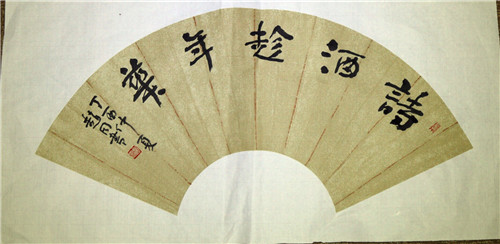 詩酒趁年華
丁酉中夏